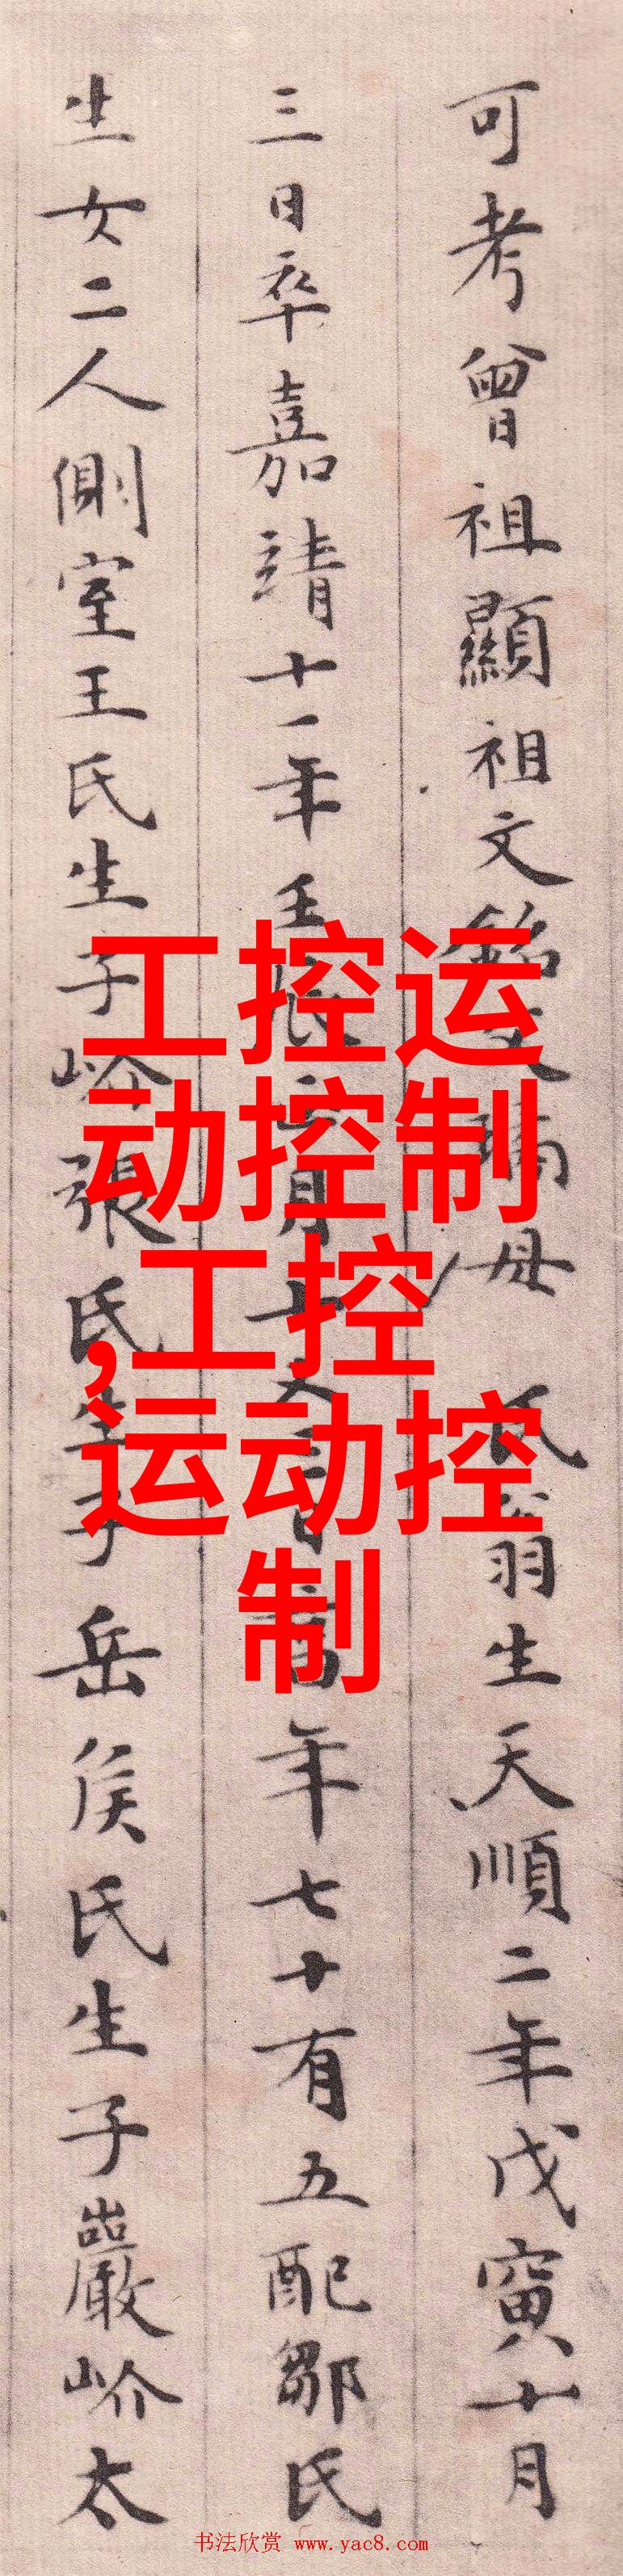 可考曾祖顯祖文銘父瑀母 氏翁生天順二年戊寅十月
三日卒嘉靖十一年壬辰 月十 日 年七十有五配鄒氏
生女二人側室王氏生子岕張氏生子岳侯氏生子巖岕太
工控运
动控制
,工控
运动控
制
书法欣赏 www.yac8.com